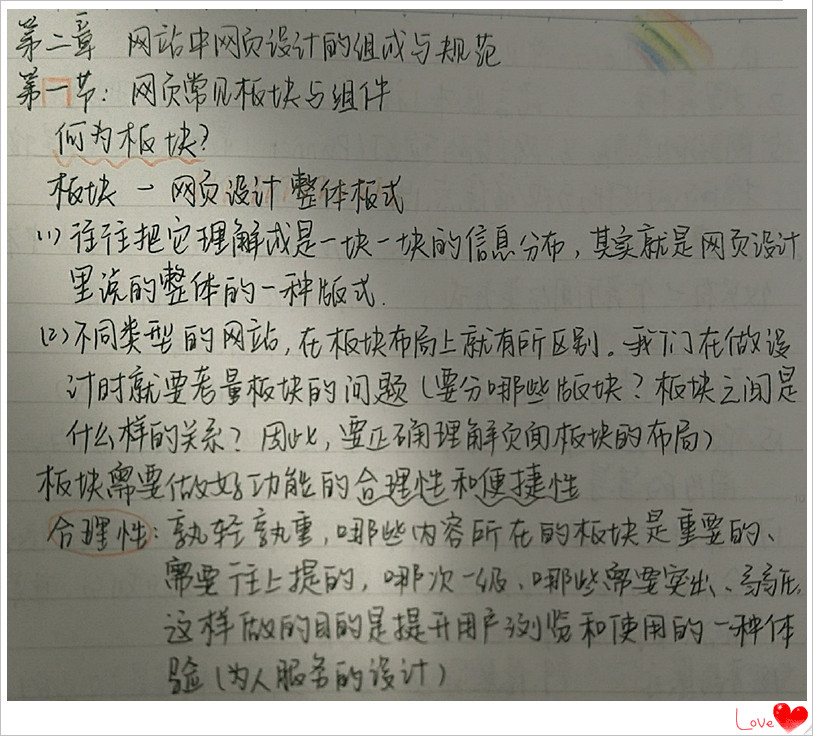 第二章 网站中网页设计的组成与规范
第一节：网页常见板块与组件
何为板块？
板块 — 网页设计整体板式
(1) 往往把它理解成是一块一块的信息分布，其实就是网页设计
里说的整体的一种版式.
(2) 不同类型的网站，在板块布局上就有所区别。我们在做设
计时就要考量板块的问题（要分哪些版块？板块之间是
什么样的关系？因此，要正确理解页面板块的布局）
板块需要做好功能的合理性和便捷性
合理性：孰轻孰重，哪些内容所在的板块是重要的、
需要往上提的，哪次一级、哪些需要突出、
这样做的目的是提升用户浏览和使用的一种体
验（为人服务的设计）
Love